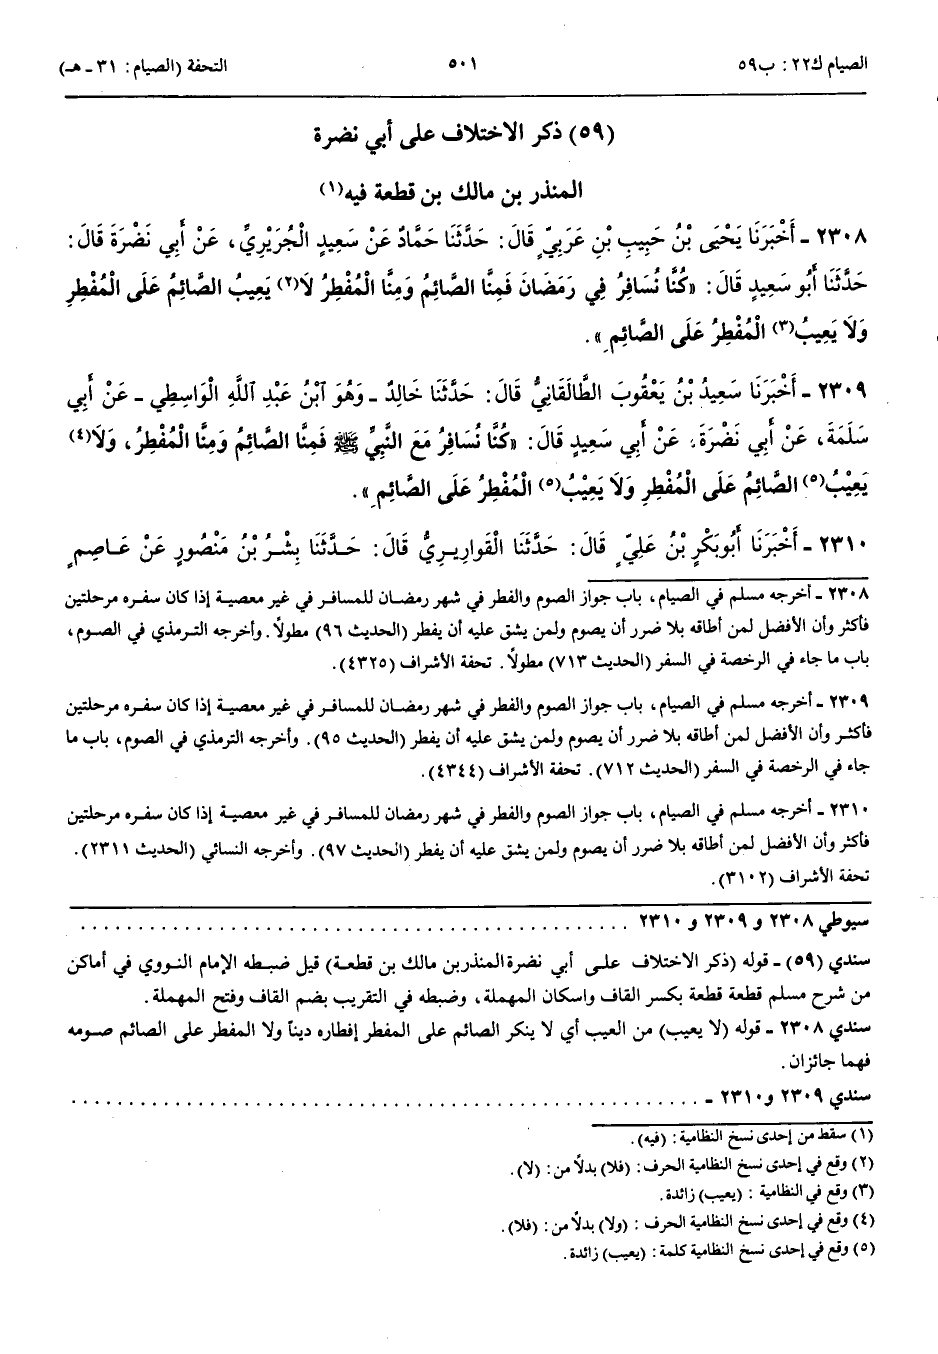 الصيام ك٢٢: ب٥٩ ٥٠١ التحفة (الصيام: ٣١ ـ هـ)
(٥٩) ذكر الاختلاف على أبي نضرة
المنذر بن مالك بن قطعة فيه(١)
٢٣٠٨ ـ أَخْبَرَنَا يَحْيَى بْنُ حَبِيبِ بْنِ عَرَبِيٍّ قَالَ: حَدَّثَنَا حَمَّادٌ عَنْ سَعِيدٍ الْجُرَيْرِيِّ، عَنْ أَبِي نَضْرَةَ قَالَ:
حَدَّثَنَا أَبُو سَعِيدٍ قَالَ: «كُنَّا نُسَافِرُ فِي رَمَضَانَ فَمِنَّا الصَّائِمُ وَمِنَّا الْمُفْطِرُ لَا(٢) يَعِيبُ الصَّائِمُ عَلَى الْمُفْطِرِ
وَلَا يَعِيبُ(٣) الْمُفْطِرُ عَلَى الصَّائِمِ».
٢٣٠٩ ـ أَخْبَرَنَا سَعِيدُ بْنُ يَعْقُوبَ الطَّالَقَانِيُّ قَالَ: حَدَّثَنَا خَالِدٌ ـ وَهُوَ ٱبْنُ عَبْدِ ٱللَّهِ الْوَاسِطِي ـ عَنْ أَبِي
سَلَمَةَ، عَنْ أَبِي نَضْرَةَ، عَنْ أَبِي سَعِيدٍ قَالَ: «كُنَّا نُسَافِرُ مَعَ النَّبِيِّ ﷺ فَمِنَّا الصَّائِمُ وَمِنَّا الْمُفْطِرُ، وَلَا(٤)
يَعِيْبُ(٥) الصَّائِمُ عَلَى الْمُفْطِرِ وَلَا يَعِيْبُ(٥) الْمُفْطِرُ عَلَى الصَّائِمِ».
٢٣١٠ ـ أَخْبَرَنَا أَبُوبَكْرِ بْنُ عَلِيٍّ قَالَ: حَدَّثَنَا الْقَوارِيرِيُّ قَالَ: حَـدَّثَنَا بِشْرُ بْنُ مَنْصُورٍ عَنْ عَـاصِمٍ
٢٣٠٨ ـ أخرجه مسلم في الصيام، باب جواز الصوم والفطر في شهر رمضان للمسافر في غير معصية إذا كان سفره مرحلتين
فأكثر وأن الأفضل لمن أطاقه بلا ضرر أن يصوم ولمن يشق عليه أن يفطر (الحديث ٩٦) مطولاً. وأخرجه الترمذي في الصوم،
باب ما جاء في الرخصة في السفر (الحديث ٧١٣) مطولًا. تحفة الأشراف (٤٣٢٥).
٢٣٠٩ ـ أخرجه مسلم في الصيام، باب جواز الصوم والفطر في شهر رمضان للمسافر في غير معصية إذا كان سفره مرحلتين
فأكثر وأن الأفضل لمن أطاقه بلا ضرر أن يصوم ولمن يشق عليه أن يفطر (الحديث ٩٥). وأخرجه الترمذي في الصوم، باب ما
جاء في الرخصة في السفر (الحديث ٧١٢). تحفة الأشراف (٤٣٤٤).
٢٣١٠ ـ أخرجه مسلم في الصيام، باب جواز الصوم والفطر في شهر رمضان للمسافر في غير معصية إذا كان سفره مرحلتين
فأكثر وأن الأفضل لمن أطاقه بلا ضرر أن يصوم ولمن يشق عليه أن يفطر (الحديث ٩٧). وأخرجه النسائي (الحديث ٢٣١١).
تحفة الأشراف (٣١٠٢).
سيوطي ٢٣٠٨ و ٢٣٠٩ و ٢٣١٠ . . . . . . . . . . . . . . . . . . . . . . . . . . . . . . . . . . . . . . . .
سندي (٥٩) ـ قوله (ذكر الاختلاف على أبي نضرة المنذربن مالك بن قطعـة) قيل ضبطه الإمام النووي في أماكن
من شرح مسلم قطعة قطعة بكسر القاف واسكان المهملة، وضبطه في التقريب بضم القاف وفتح المهملة.
سندي ٢٣٠٨ ـ قوله (لا يعيب) من العيب أي لا ينكر الصائم على المفطر إفطاره ديناً ولا المفطر على الصائم صومه
فهما جائزان.
سندي ٢٣٠٩ و٢٣١٠ ـ . . . . . . . . . . . . . . . . . . . . . . . . . . . . . . . . . . . . . . . . . . . .
(١) سقط من إحدى نسخ النظامية: (فيه).
(٢) وقع في إحدى نسخ النظامية الحرف: (فلا) بدلاً من: (لا).
(٣) وقع في النظامية : (يعيب) زائدة.
(٤) وقع في إحدى نسخ النظامية الحرف : (ولا) بدلاً من: (فلا).
(٥) وقع في إحدى نسخ النظامية كلمة: (يعيب) زائدة.